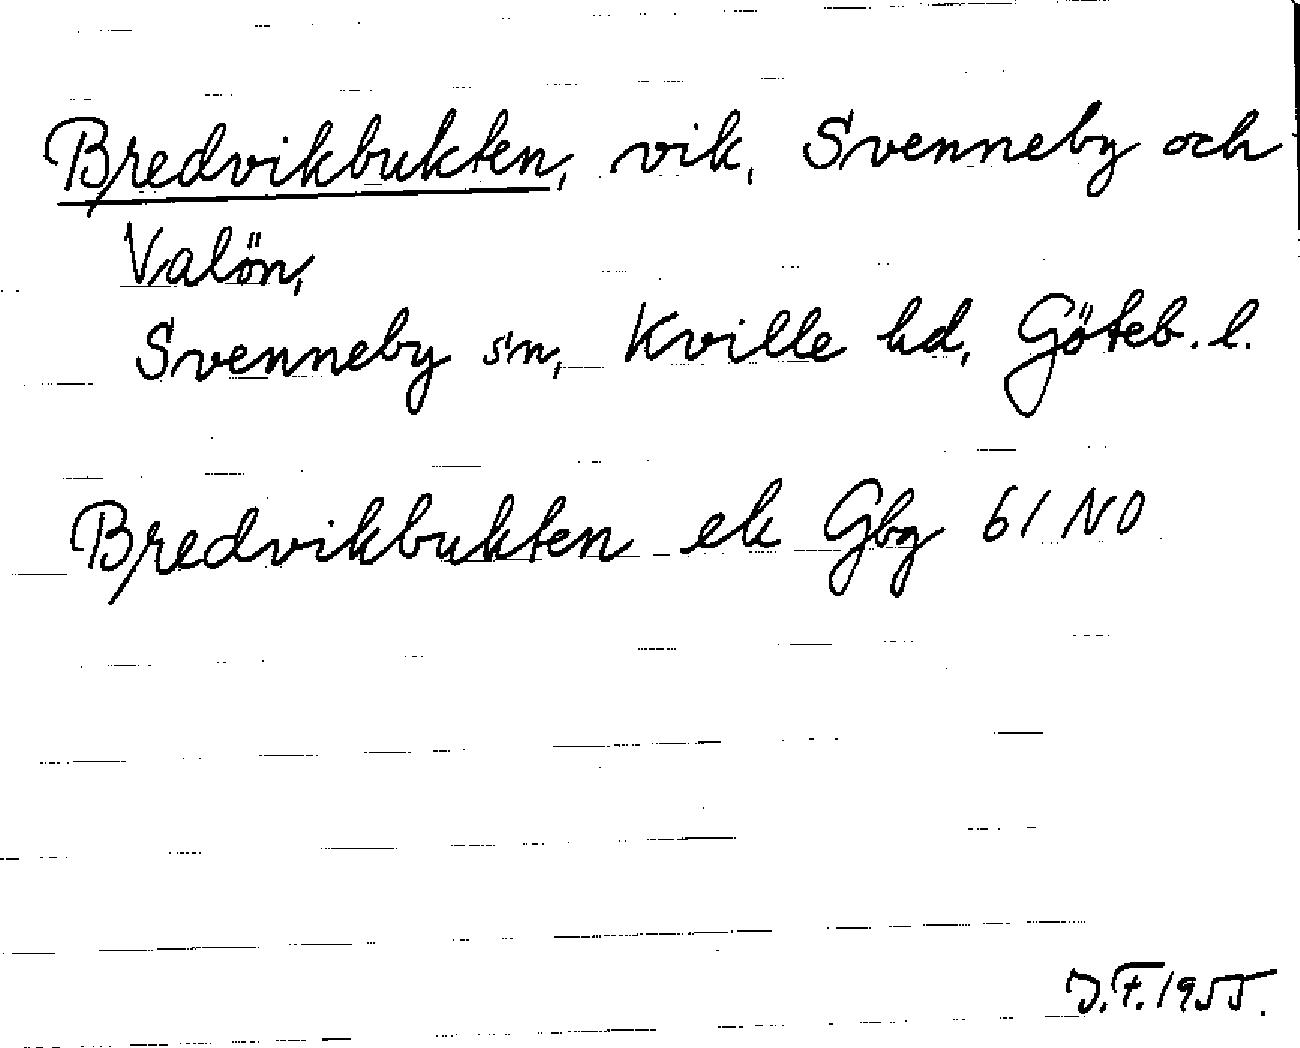 Bredvikbukten, vik, Svenneby och
Valön,
Svenneby sn, Kville hd, Göteb. l.
Bredvikbukten ek Gbg 61 NO
J.F. 1955.